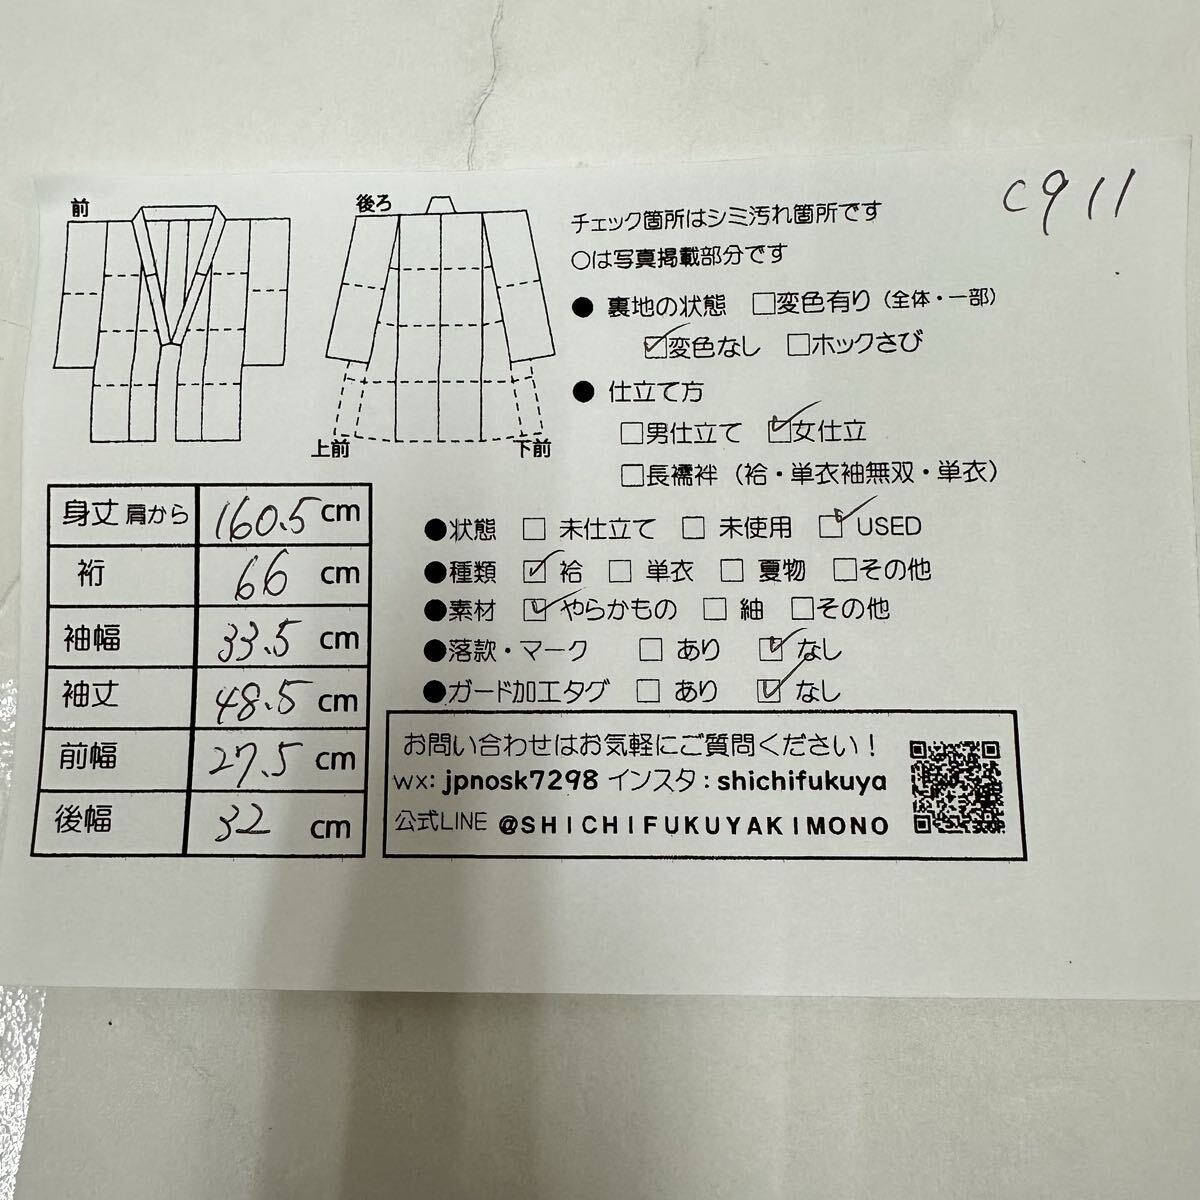 C911
前
後ろ
上前
下前
チェック箇所はシミ汚れ箇所です
○は写真掲載部分です
● 裏地の状態 □変色有り（全体・一部）
☑変色なし □ホックさび
● 仕立て方
□男仕立て ☑女仕立
□長襦袢（袷・単衣袖無双・単衣）
●状態 □ 未仕立て □ 未使用 ☑ USED
●種類 ☑ 袷 □ 単衣 □ 夏物 □その他
●素材 ☑やらかもの □ 紬 □その他
●落款・マーク □ あり ☑ なし
●ガード加工タグ □ あり ☑ なし
身丈 肩から 160.5 cm
裄 66 cm
袖幅 33.5 cm
袖丈 48.5 cm
前幅 27.5 cm
後幅 32 cm
お問い合わせはお気軽にご質問ください！
wx: jpnosk7298 インスタ : shichifukuya
公式LINE @SHICHIFUKUYAKIMONO